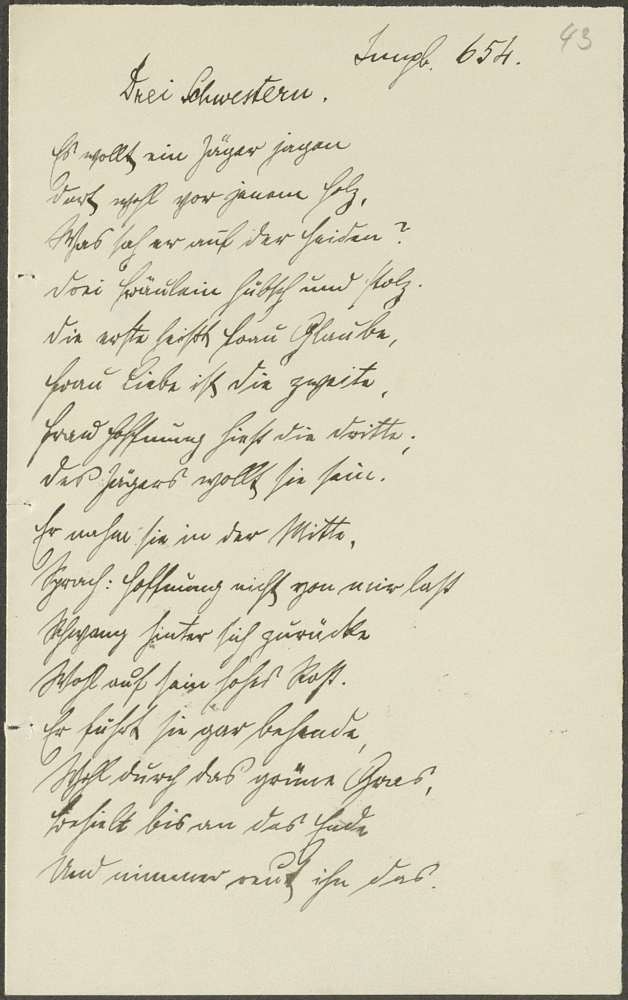 Jungb. 654.
43
Drei Schwestern.
Es wollt ein Jäger jagen
dort wohl vor jenem Holz,
Was sah er auf der Heiden?
drei Fräulein hübsch und stolz.
die erste heißt Frau Glaube,
Frau Liebe ist die zweite,
Frau Hoffnung hieß die dritte,
des Jägers wollt sie sein.
Er nahm sie in der Mitte,
Sprach: Hoffnung nicht von mir laß
Schwang hinter sich zurücke
Wohl auf sein hohes Roß.
Er führt sie gar behende,
Wohl durch das grüne Gras,
Behielt bis an das Ende
Und nimmer reut ihn das.